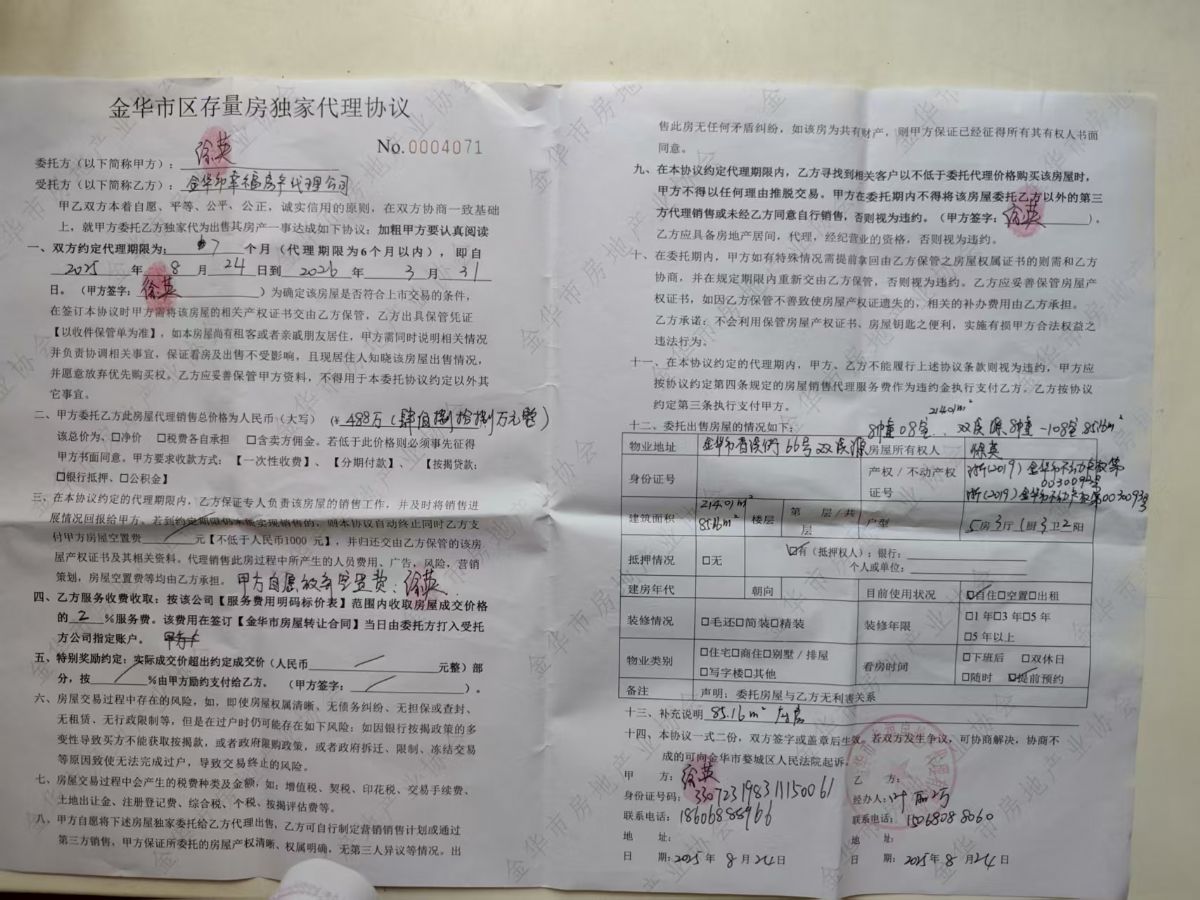 金华市区存量房独家代理协议
No. 0004071
委托方（以下简称甲方）：徐英
受托方（以下简称乙方）：金华市幸福房产代理公司
甲乙双方本着自愿、平等、公平、公正，诚实信用的原则，在双方协商一致基础
上，就甲方委托乙方独家代为出售其房产一事达成如下协议：加粗甲方要认真阅读
一、双方约定代理期限为：7 个月（代理期限为6个月以内），即自
2025 年 8 月 24 日到 2026 年 3 月 31
日。（甲方签字：徐英）为确定该房屋是否符合上市交易的条件，
在签订本协议时甲方需将该房屋的相关产权证书交由乙方保管，乙方出具保管凭证
【以收件保管单为准】，如本房屋尚有租客或者亲戚朋友居住，甲方需同时说明相关情况
并负责协调相关事宜，保证看房及出售不受影响，且现居住人知晓该房屋出售情况，
并愿意放弃优先购买权。乙方应妥善保管甲方资料，不得用于本委托协议约定以外其
它事宜。
二、甲方委托乙方此房屋代理销售总价格为人民币（大写）（¥ 488万（肆佰捌拾捌万元整）
该总价为、□净价 □税费各自承担 □含卖方佣金。若低于此价格则必须事先征得
甲方书面同意。甲方要求收款方式：【一次性收费】、【分期付款】、【按揭贷款：
□银行抵押、□公积金】
三、在本协议约定的代理期限内，乙方保证专人负责该房屋的销售工作，并及时将销售进
展情况回报给甲方。若到约定期限仍未能实现销售的，则本协议自动终止同时乙方支
付甲方房屋空置费 元【不低于人民币1000 元】，并归还交由乙方保管的该房
屋产权证书及其相关资料。代理销售此房过程中所产生的人员费用、广告，风险，营销
策划，房屋空置费等均由乙方承担。甲方自愿放弃空置费. 徐英
四、乙方服务收费收取：按该公司【服务费用明码标价表】范围内收取房屋成交价格
的 2 %服务费。该费用在签订【金华市房屋转让合同】当日由委托方打入受托
方公司指定账户。
五、特别奖励约定：实际成交价超出约定成交价（人民币 元整）部
分，按 %由甲方励约支付给乙方。（甲方签字： ）。
六、房屋交易过程中存在的风险，如，即使房屋权属清晰、无债务纠纷、无担保或查封、
无租赁、无行政限制等，但是在过户时仍可能存在如下风险：如因银行按揭政策的多
变性导致买方不能获取按揭款，或者政府限购政策，或者政府拆迁、限制、冻结交易
等原因致使无法完成过户，导致交易终止的风险。
七、房屋交易过程中会产生的税费种类及金额，如：增值税、契税、印花税、交易手续费、
土地出让金、注册登记费、综合税、个税、按揭评估费等。
八、甲方自愿将下述房屋独家委托给乙方代理出售，乙方可自行制定营销销售计划或通过
第三方销售，甲方保证所委托的房屋产权清晰、权属明确，无第三人异议等情况，出
售此房无任何矛盾纠纷，如该房为共有财产，则甲方保证已经征得所有其有权人书面
同意。
九、在本协议约定代理期限内，乙方寻找到相关客户以不低于委托代理价格购买该房屋时，
甲方不得以任何理由推脱交易。甲方在委托期内不得将该房屋委托乙方以外的第三
方代理销售或未经乙方同意自行销售，否则视为违约。（甲方签字：徐英）。
乙方应具备房地产居间，代理，经纪营业的资格，否则视为违约。
十、在委托期内，甲方如有特殊情况需提前拿回由乙方保管之房屋权属证书的则需和乙方
协商，并在规定期限内重新交由乙方保管，否则视为违约。乙方应妥善保管房屋产
权证书，如因乙方保管不善致使房屋产权证遗失的，相关的补办费用由乙方承担。
乙方承诺：不会利用保管房屋产权证书、房屋钥匙之便利，实施有损甲方合法权益之
违法行为。
十一、在本协议约定的代理期限内，甲方、乙方不能履行上述协议条款则视为违约，甲方应
按协议约定第四条规定的房屋销售代理服务费作为违约金执行支付乙方。乙方按协议
约定第三条执行支付甲方。
214.01m²
十二、委托出售房屋的情况如下：8幢 08室 . . 双溪源 8幢 -108室 85.16m²
物业地址 金华市 66号双溪源 房屋所有权人 徐英
身份证号 产权/不动产权证号 浙(2019)金华市不动产权第0030092号
浙(2019)金华市不动产权第0030093号
建筑面积 214.01m² 85.16m² 楼层 第 层/共 层 户型 5房3厅1厨3卫2阳
抵押情况 □无 □有（抵押权人）：银行：
个人或单位：
建房年代 朝向 目前使用状况 ☑自住□空置□出租
装修情况 □毛还□简装□精装 装修年限 □1年□3年□5年
□5年以上
物业类别 □住宅□商住□别墅/排屋
□写字楼□其他 看房时间 □下班后 □双休日
□随时 ☑提前预约
备注 声明：委托房屋与乙方无利害关系
十三、补充说明 85.16m²
十四、本协议一式二份，双方签字或盖章后生效，若双方发生争议，可协商解决，协商不
成的可向金华市婺城区人民法院起诉。
甲 方：徐英 乙 方：
身份证号码：330723198311150061 经办人：叶
联系电话： 联系电话：15068088060
地 址： 地 址：
日 期：2025年 8月24日 日 期：2025年 8月24日